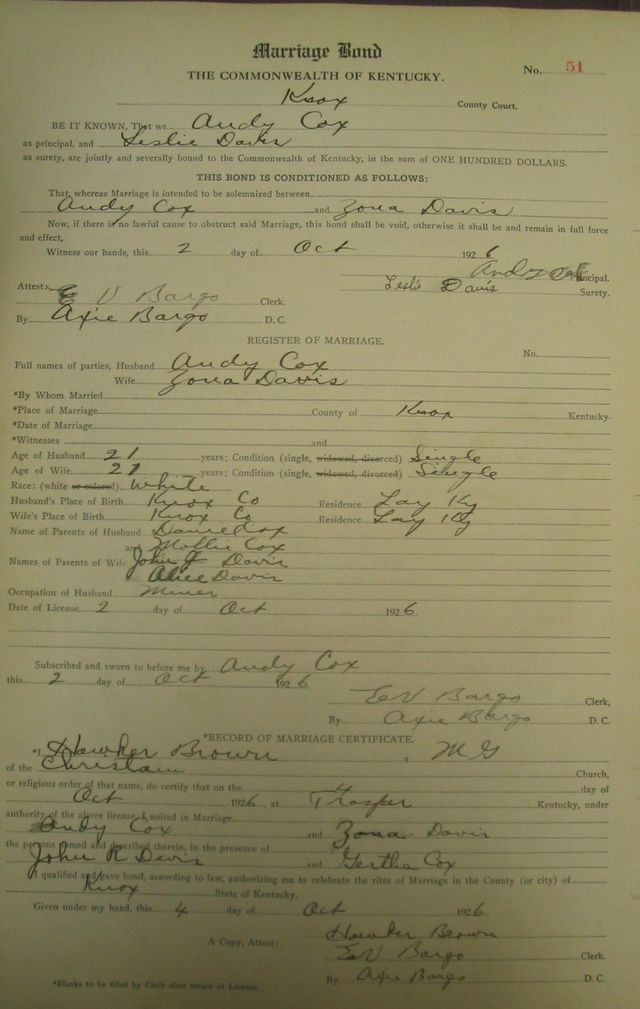 Marriage Bond
THE COMMONWEALTH OF KENTUCKY.
No. 51
Knox County Court.
BE IT KNOWN, That we Andy Cox
as principal, and Leslie Davis
as surety, are jointly and severally bound to the Commonwealth of Kentucky, in the sum of ONE HUNDRED DOLLARS.
THIS BOND IS CONDITIONED AS FOLLOWS:
That, whereas Marriage is intended to be solemnized between
Andy Cox and Zona Davis
Now, if there is no lawful cause to obstruct said Marriage, this bond shall be void, otherwise it shall be and remain in full force
and effect,
Witness our hands, this 2 day of Oct 1926
Andy Cox Principal.
Leslie Davis Surety.
Attest: E V Bargo Clerk.
By Axie Bargo D. C.
REGISTER OF MARRIAGE.
No.
Full names of parties, Husband Andy Cox
Wife Zona Davis
*By Whom Married
*Place of Marriage County of Knox Kentucky.
*Date of Marriage
*Witnesses and
Age of Husband 21 years; Condition (single, widowed, divorced) Single
Age of Wife 21 years; Condition (single, widowed, divorced) Single
Race: (white or colored) White
Husband's Place of Birth Knox Co Residence Lay Ky
Wife's Place of Birth Knox Co Residence Lay Ky
Name of Parents of Husband Daniel Cox
and Mollie Cox
Names of Parents of Wife John J Davis
Alice Davis
Occupation of Husband Miner
Date of License 2 day of Oct 1926
Subscribed and sworn to before me by Andy Cox
this 2 day of Oct 1926
E V Bargo Clerk,
By Axie Bargo D. C.
*RECORD OF MARRIAGE CERTIFICATE.
*I Hawker Brown, M G
of the Christain Church,
or religious order of that name, do certify that on the 4 day of
Oct 1926, at Trosper Kentucky, under
authority of the above license, I united in Marriage
Andy Cox and Zona Davis
the persons named and described therein, in the presence of
John R Davis and Gertha Cox
I qualified and gave bond, according to law, authorizing me to celebrate the rites of Marriage in the County (or city) of
Knox State of Kentucky.
Given under my hand, this 4 day of Oct 1926
Hawker Brown
A Copy, Attest: E V Bargo Clerk.
By Axie Bargo D. C.
*Blanks to be filled by Clerk after return of License.